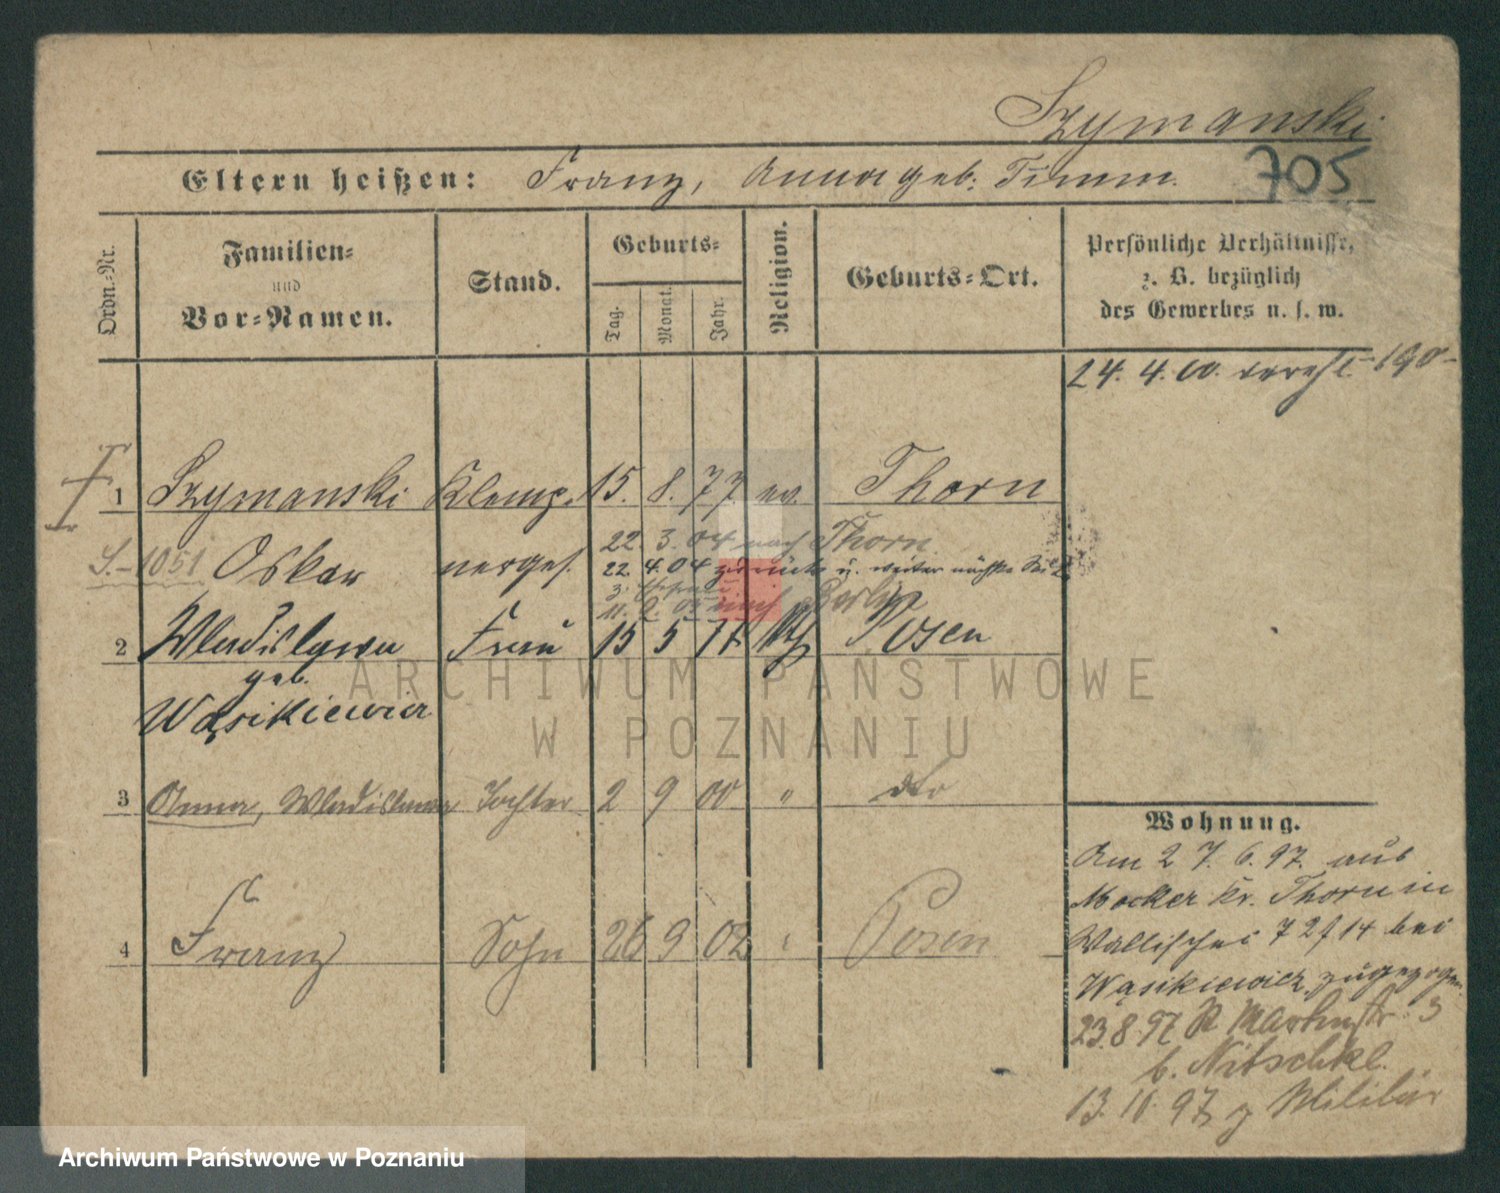 Szymanski
Eltern heißen: Franz, Anna geb. Timm.
705
Ordn.-Nr.
Familien-
und
Vor-Namen.
Stand.
Geburts-
Tag.
Monat.
Jahr.
Religion.
Geburts-Ort.
Persönliche Verhältnisse,
z. B. bezüglich
des Gewerbes u. s. w.
24. 4. 00. verehl.
1 Szymanski Klemp. 15. 8. 77 ev. Thorn
22 3. 04 nach Thorn
S.-1051 Oskar
22. 4. 04 zurück u. weiter
11. 2. 05 nach Berlin
2 Wladislawa Frau 15 5 77 kth Posen
geb.
Wąsikiewicz
3 Anna, Wladislawa Tochter 2 9 00 " dto
4 Franz Sohn 26 9 02 " Posen
Wohnung.
Am 27. 6. 97. aus
Mocker Kr. Thorn in
Wallischei 72/14 bei
Wąsikiewicz zugezogen.
23. 8. 97 St Martinstr. 3
b. Nitschke.
13. 11. 97 z Militär
ARCHIWUM PAŃSTWOWE
W POZNANIU
Archiwum Państwowe w Poznaniu